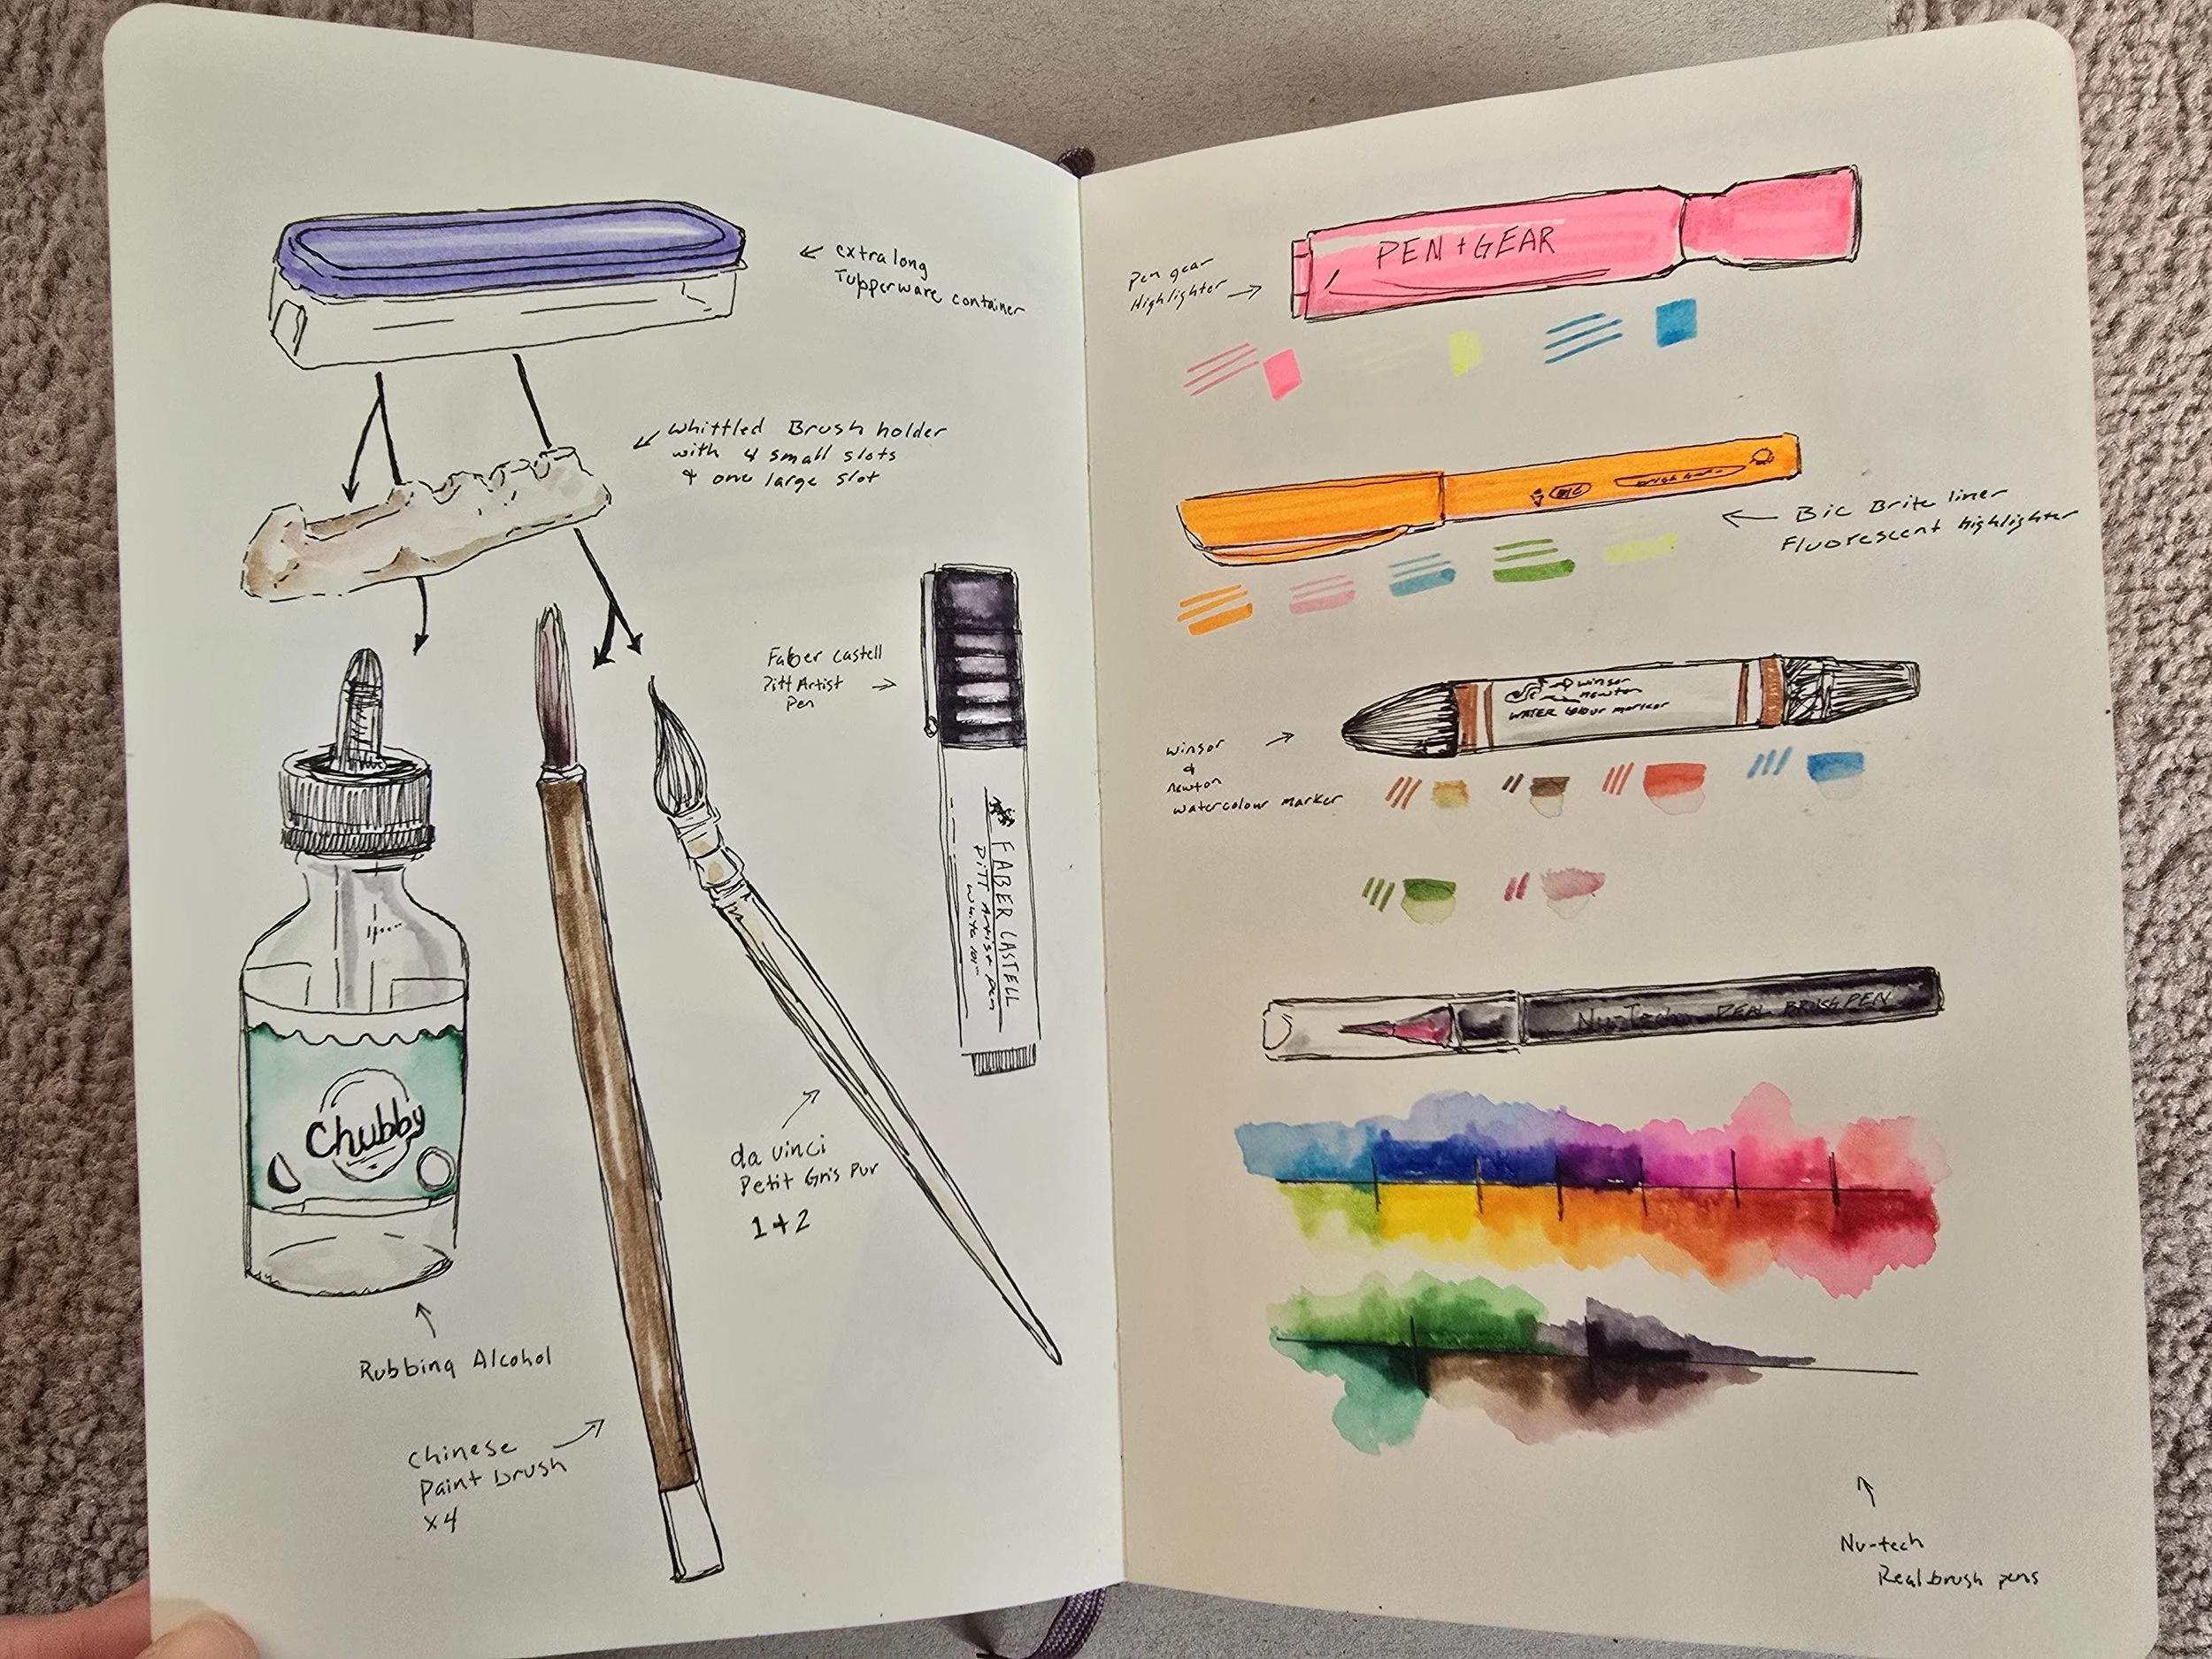 extra long
Tupperware container
whittled Brush holder
with 4 small slots
& one large slot
Faber Castell
Pitt Artist
Pen
FABER CASTELL
Pitt Artist pen
White
Chubby
da vinci
Petit Gris Pur
1 + 2
Rubbing Alcohol
Chinese
Paint brush
x4
PEN + GEAR
Pen gear
Highlighter
BIC
Bic Brite liner
Fluorescent highlighter
winsor
newton
WATER Colour marker
winsor
&
newton
watercolour marker
Nu-Tech REAL BRUSH PEN
Nu-tech
Real brush pens